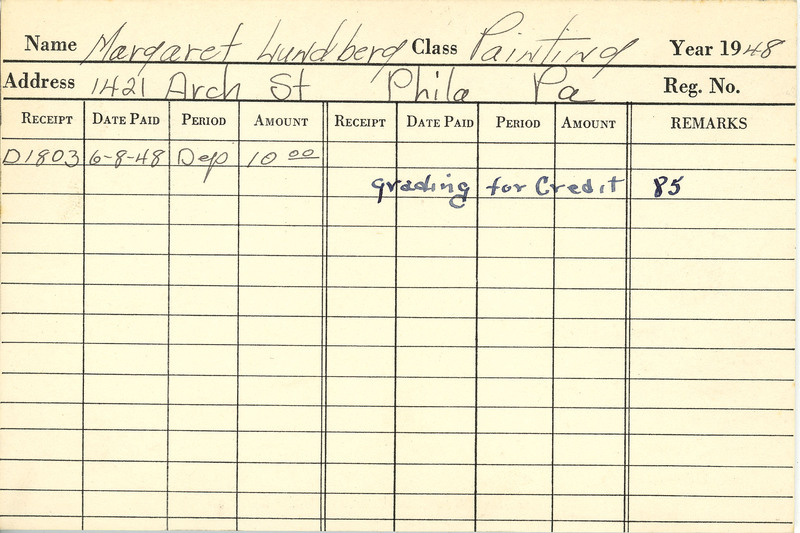 Name Margaret Lundberg Class Painting Year 1948
Address 1421 Arch St Phila Pa Reg. No.
RECEIPT DATE PAID PERIOD AMOUNT RECEIPT DATE PAID PERIOD AMOUNT REMARKS
D1803 6-8-48 Dep 10 00
grading for Credit 85